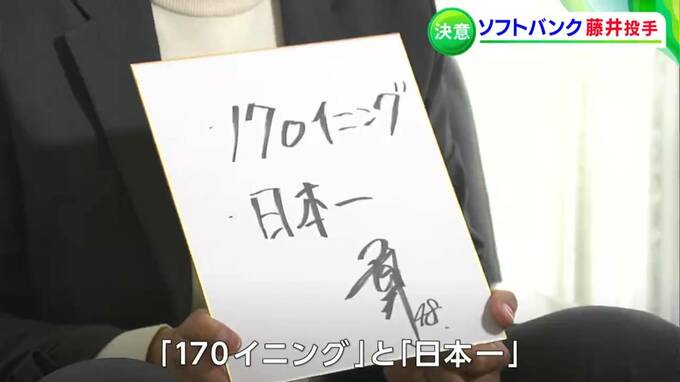 決意 ソフトバンク 藤井投手
・170イニング
・日本一
48.
「170イニング」と「日本一」